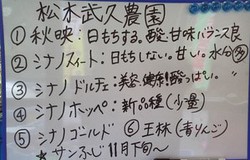 松木武久農園
①秋映:日もちする。酸、甘味バランス良
②シナノスイート:日もちしない。甘い。水分多
③シナノドルチェ:美容、健康!酸っぱい。〃
④シナノホッペ:新品種(少量)
⑤シナノゴールド ⑥王林(青りんご)
★サンふじ11月下旬〜